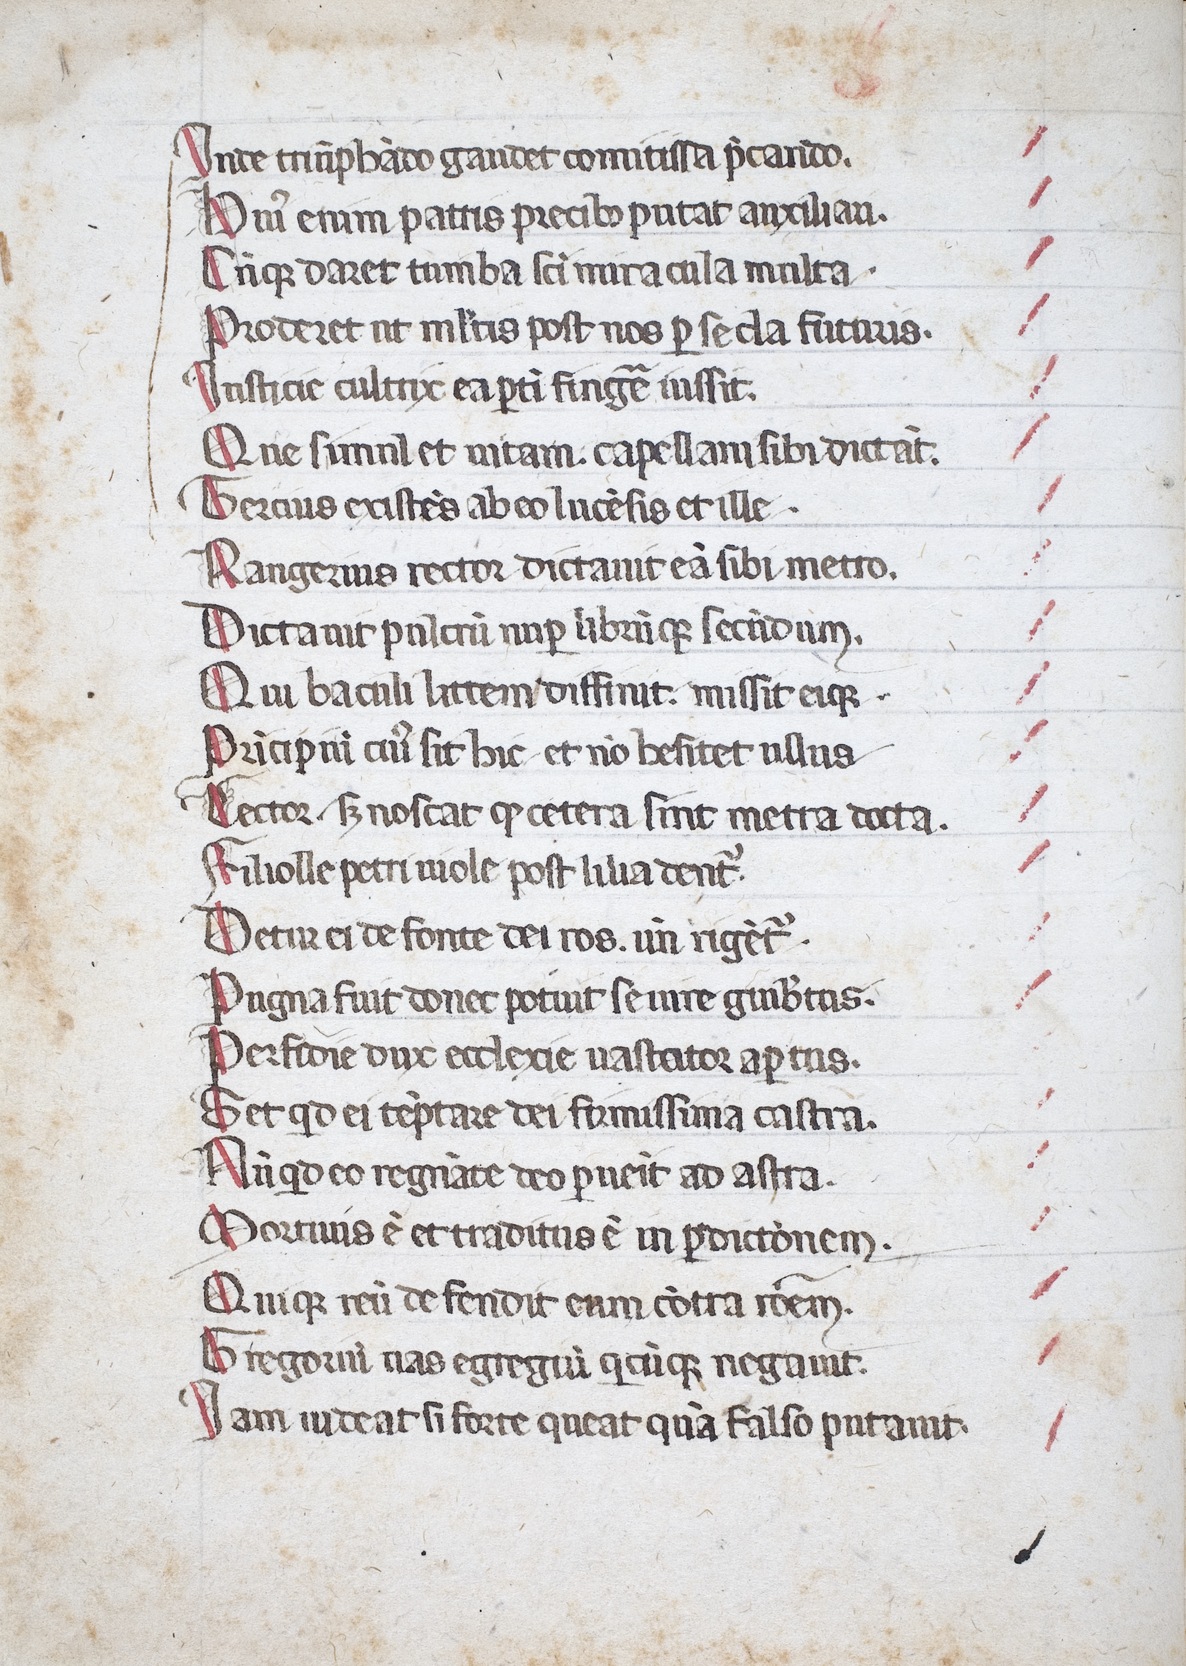 Inde triūphādo gaudet comitissa p̄cando.
Hui᷒ enim patris precib᷒ putat auxiliari.
Cūqꝫ daret tumba sc̄i miracula multa.
Proderet ut ml̄tis post nos ꝑ secla futuris.
Justicie cultrix ea ꝑti fing̃e iussit.
Que simul et uitam. capellani sibi dictāt.
Tercius existēs ab eo lucēsis et ille.
Rangerius rector dictauit eā sibi metro.
Dictauit pulcrū nuꝑ librūqꝫ secūdum.
Qui baculi littem diffinit. missit eiqꝫ.
Prīcipiū cui᷒ sit hic et nō hesitet ullus
Lector. sꝫ noscat ꝙ cetera sint metra docta.
Filiolle petri uiole post lilia dent᷑.
Detur ei de fonte dei ros. un̄ rigēt᷑.
Pugna fuit donec potuit seuire guib̄tus.
Perfidie dux ecclexie uastator aꝑtus.
Set qd ei tēptare dei firmissima castra.
Nūqd eo regnāte deo ꝑueīt ad astra.
Mortuus ē et traditus ē in ꝑdictōnem.
Quiqꝫ reū defendit eum cōtra rōem.
Gregoriū uas egregiū qicūqꝫ negauit.
Iam uideat si forte queat quā falso putauit.